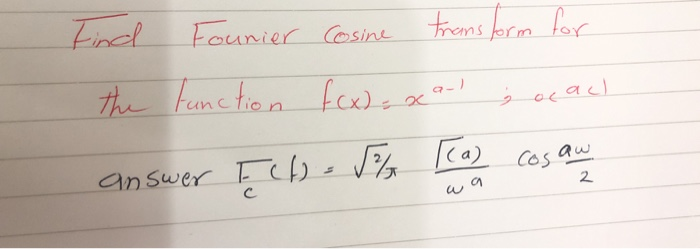 Find Fourier Cosine transform for
the function f(x) = x^{a-1} ; 0<a<1
answer F_c(f) = √2/π Γ(a)/w^a cos aw/2